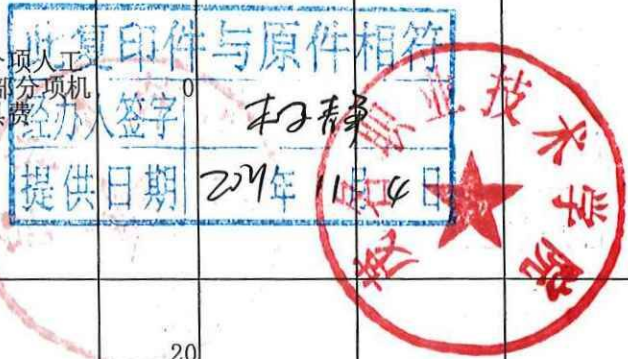 此复印件与原件相符
项人工
部分项机
费
0
经办人签字
静
提供日期
年11月4日
职业技术学院
20